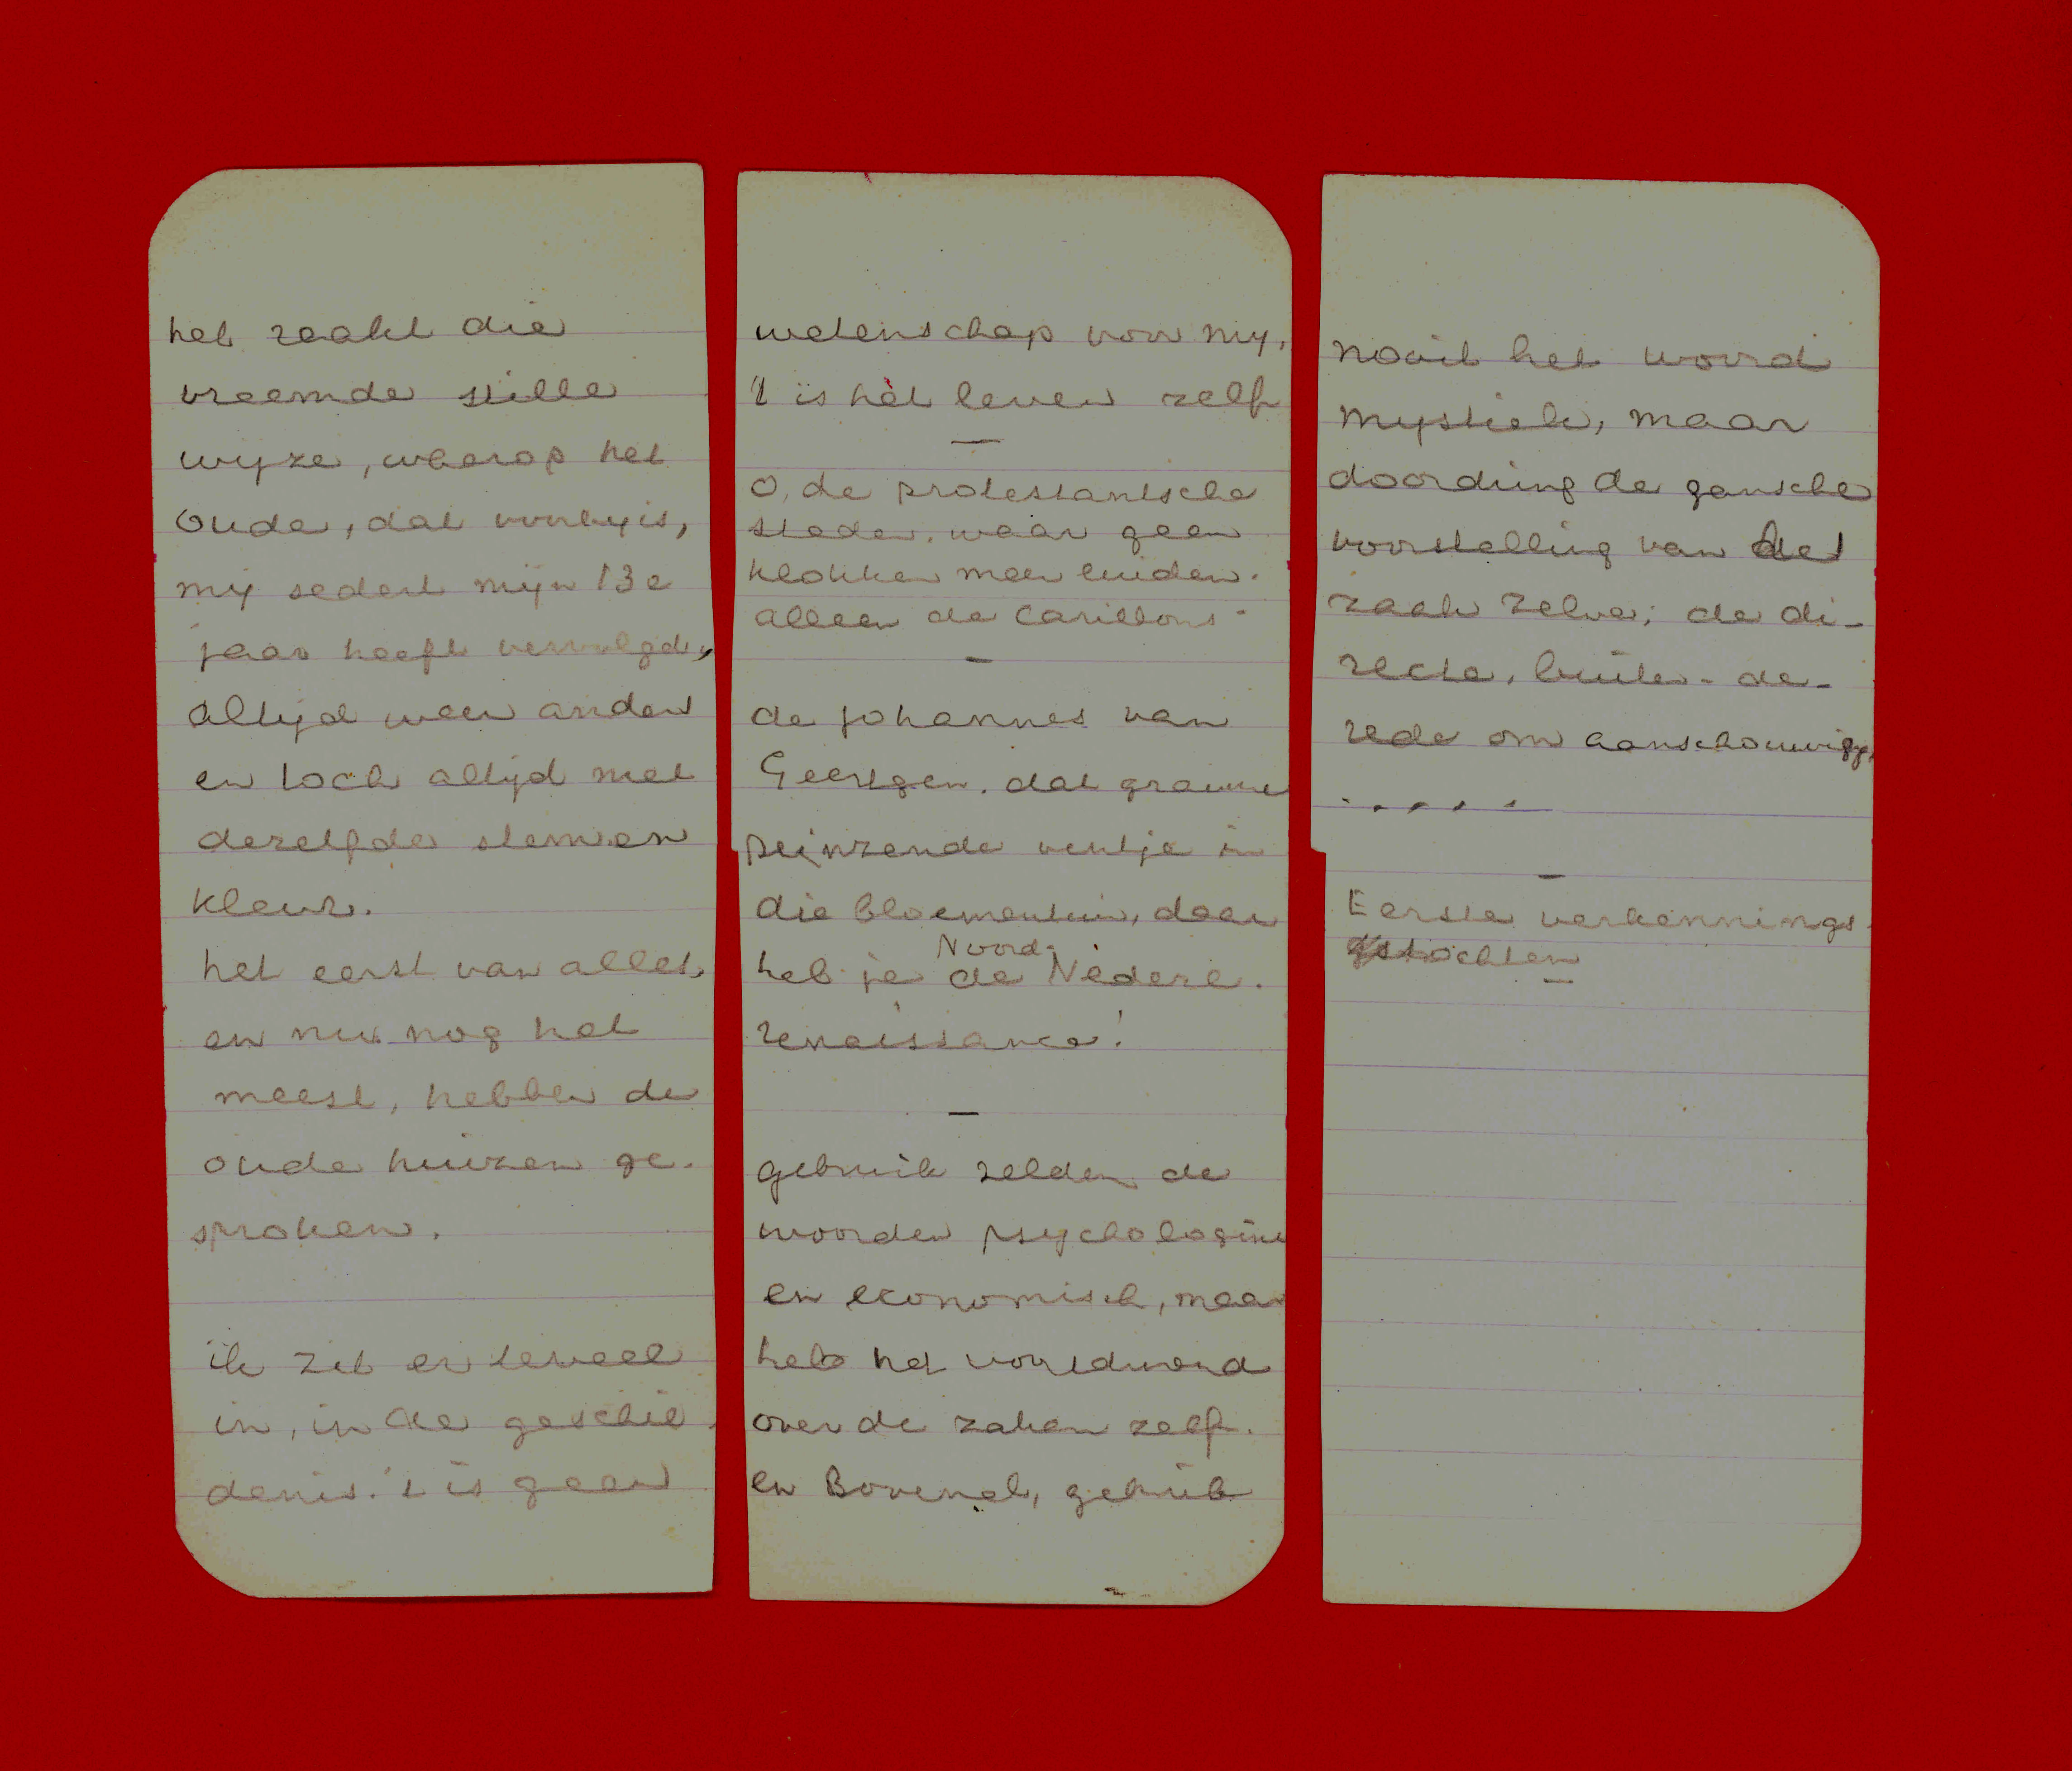 het raakt die
vreemde stille
wijze, waarop het
Oude, dat voorby is,
mij sedert mijn 13e
jaar heeft vervolgd,
altijd weer anders
en toch altijd met
dezelfde stem en
kleur.
het eerst van alles,
en nu nog het
meest, hebben de
oude huizen ge-
sproken.
ik zit er teveel
in, in de geschie-
denis. 't is geen
wetenschap voor mij,
't is hèt leven zelf
—
O, de protestantsche
steden, waar geen
klokken meer luiden.
alleen de carillons.
—
de Johannes van
Geertgen. dat grauwe
peinzende ventje in
die bloementuin, daar
heb je de Noord-Nederl.
renaissance!
—
gebruik zelden de
woorden psychologisch
en economisch, maar
heb het voortdurend
over de zaken zelf.
en Bovenal, gebruik
nooit het woord
mystiek, maar
doordring de gansche
voorstelling van de
zaak zelve; de di-
recte, buiten-de-
rede om aanschouwing,
. . . . .
—
Eerste verkennings-
tochten
—